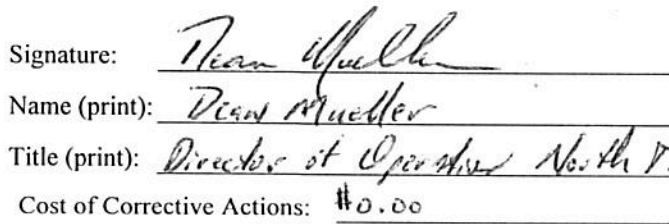 Signature: Dean Mueller
Name (print): Dean Mueller
Title (print): Director of Operations North
Cost of Corrective Actions: $0.00